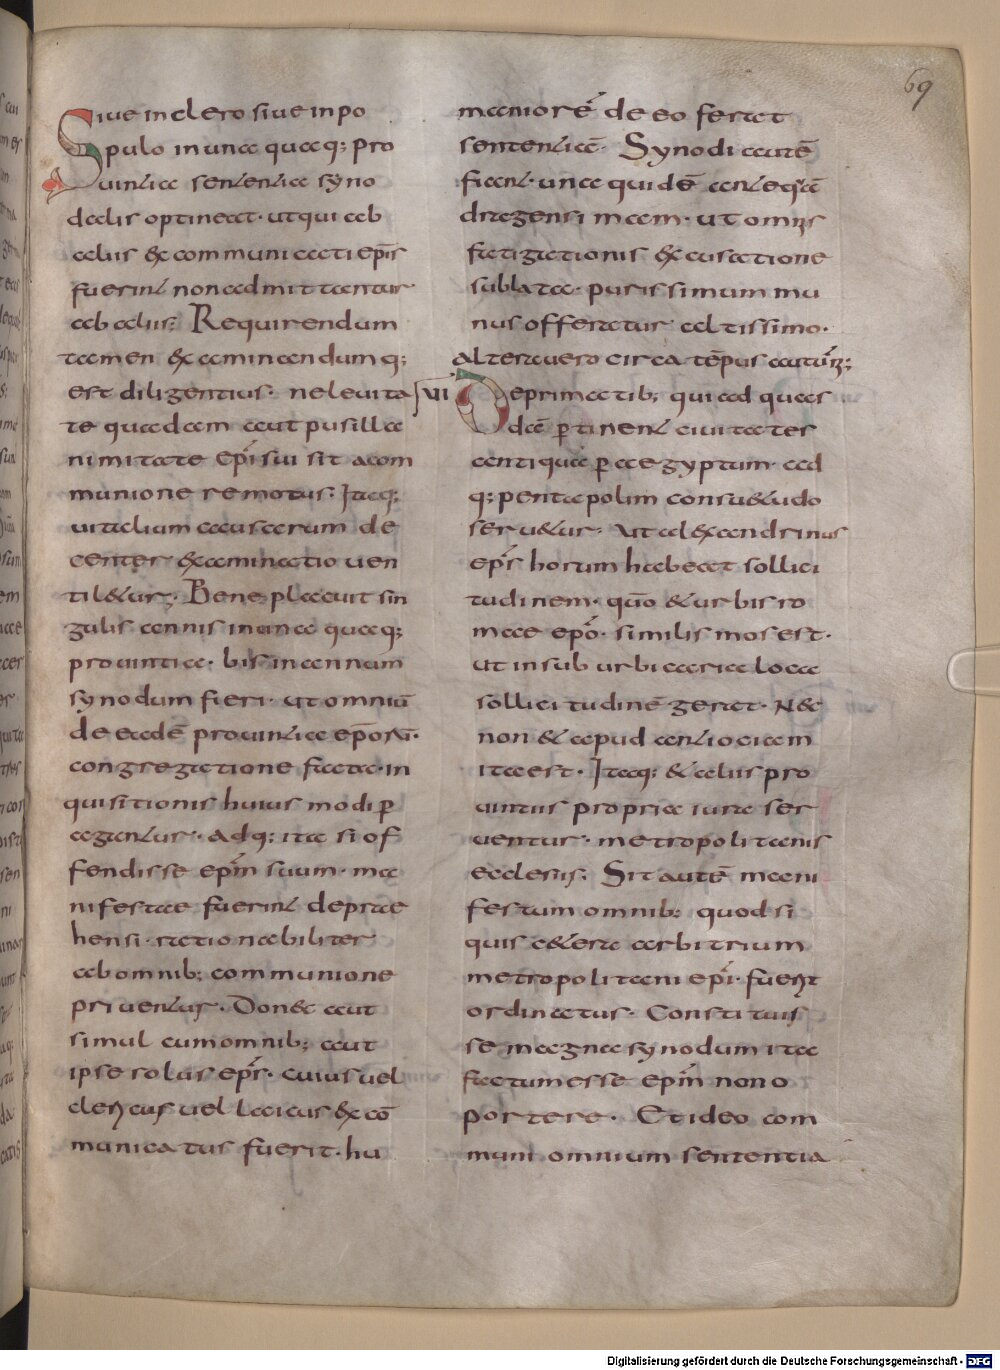 69
Siue in clero siue in po
pulo in una quaq; pro
uintia sententia syno
dalis optineat· ut qui ab
aliis & communicati ep̄is
fuerint non admittantur
ab aliis; Requirendum
tamen & aminandum q;
est diligentius· ne leuita
te quadam aut pusilla
nimitate ep̄i sui sit acom
munione remotus; Itaq;
ut alium accusarum de
center examinatio uen
til&ur; Bene placuit sin
gulis annis in una quaq;
prouintia· bis in annum
synodum fieri· ut omniū
de eadē prouintia ep̄orū·
congregatione facta· in
quisitionis huius modi ꝑ
agantur· Adq; ita si of
fendisse ep̄m suum· ma
nifestae fuerint deprae
hensi· rationabiliter
ab omnib; communione
priuentur· Don&c aut
simul cum omnib; aut
ipse solus ep̄s· cuius uel
clericus uel laicus & cō
municatus fuerit· hu
maniorē de eo ferat
sententiā· Synodi autē
fiant· una quidē ante qua
dragensimam· ut omīs
fatigationis & cusatione
sublata· purissimum mu
nus offeratur altissimo·
altera uero circa tēpus autum̄;
VI Deprimatib; qui ad quas
dā ꝑtinent ciuitates
antiqua ꝑ aegyptum· ad
q; pentapolim consu&udo
seru&ur· ut alexandrinus
ep̄s horum habeat sollici
tudinem· quō & urbis ro
mae ep̄o· similis mos est·
ut in sub urbicaria loca
sollicitudinē gerat· Nec
non & apud antiociam
ita est· Itaq; & aliis pro
uintiis propria iura ser
uentur· metropolitanis
eclesiis; Sit autē mani
festum omnib; quod si
quis c&era arbitrium
metropolitani ep̄i· fuerit
ordinatus· Constituis
se magna synodum ita
factum esse ep̄m non o
portere· Et ideo com
muni omnium sententia
Digitalisierung gefördert durch die Deutsche Forschungsgemeinschaft - DFG